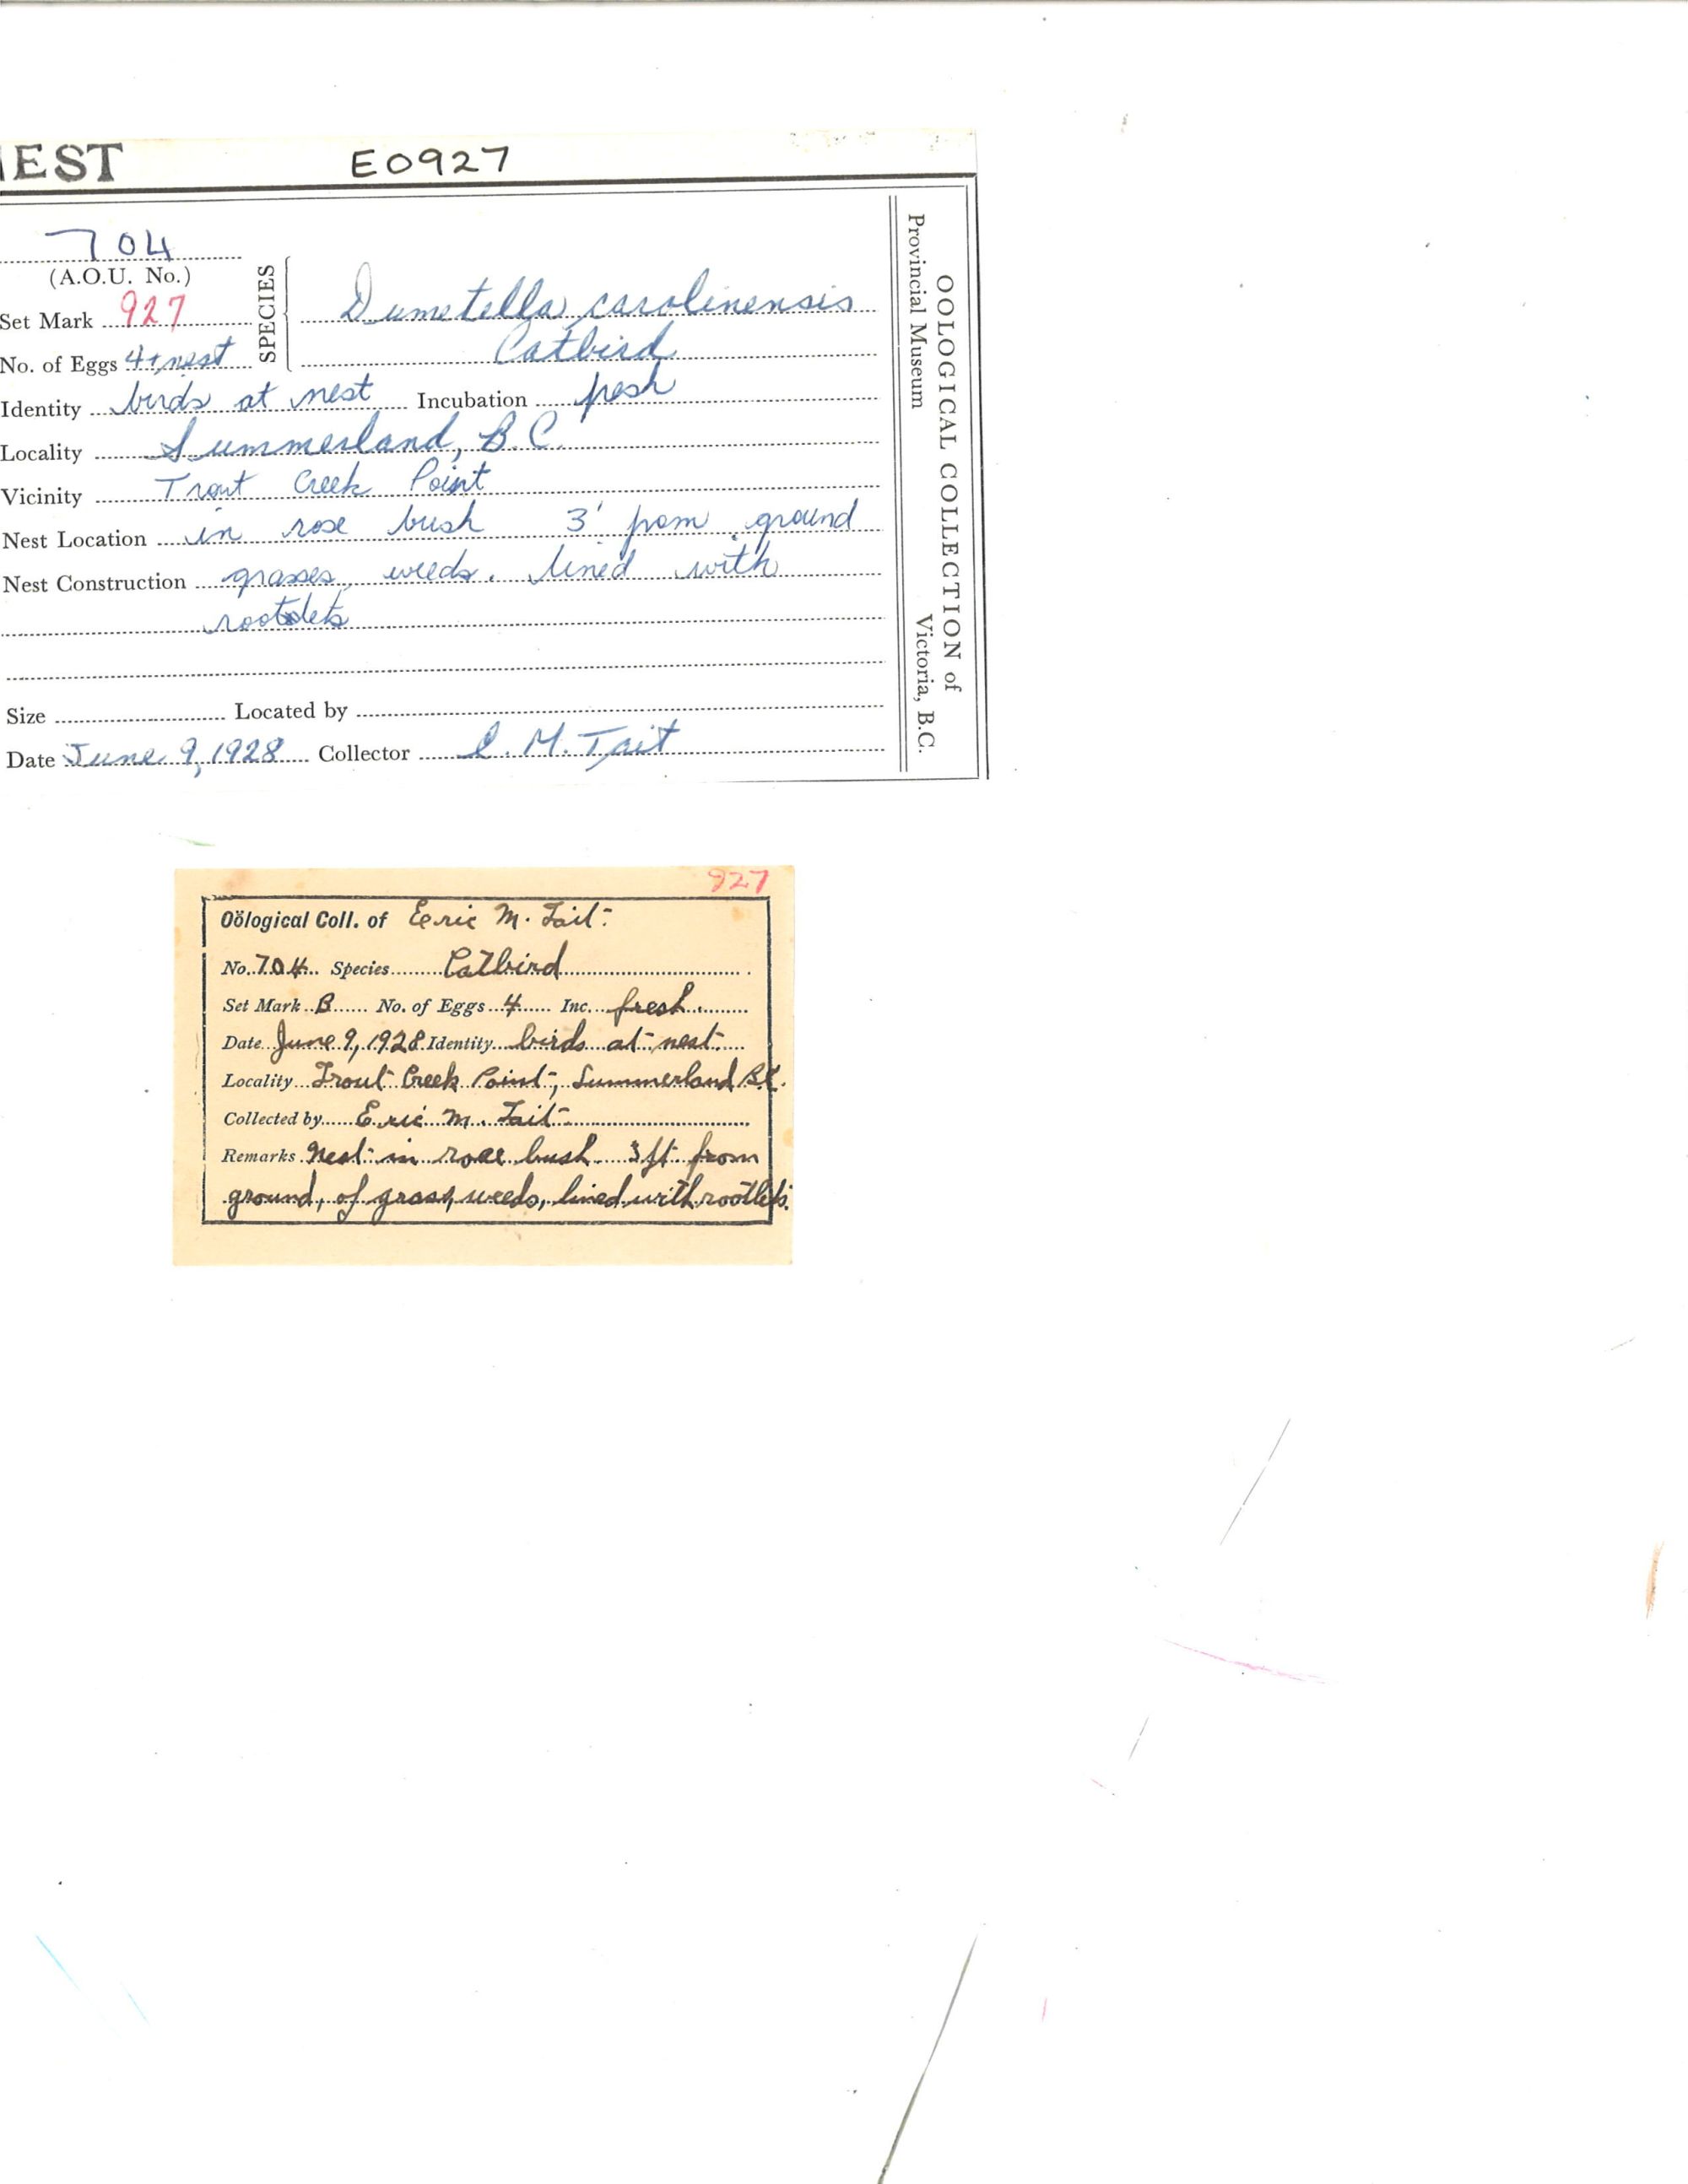 NEST E0927
704
(A.O.U. No.)
Set Mark 927
No. of Eggs 4 + nest
SPECIES
Dumetella carolinensis
Catbird
Identity birds at nest Incubation fresh
Locality Summerland, B.C.
Vicinity Trout Creek Point
Nest Location in rose bush 3' from ground
Nest Construction grasses, weeds. lined with
rootlets
Size Located by
Date June 9, 1928 Collector E. M. Tait
OOLOGICAL COLLECTION of
Provincial Museum Victoria, B.C.
927
Oölogical Coll. of Eric M. Tait
No. 704 Species Catbird
Set Mark B No. of Eggs 4 Inc. fresh
Date June 9, 1928 Identity birds at nest
Locality Trout Creek Point, Summerland B.C.
Collected by Eric M. Tait
Remarks Nest in rose bush 3 ft from
ground, of grass, weeds, lined with rootlets.